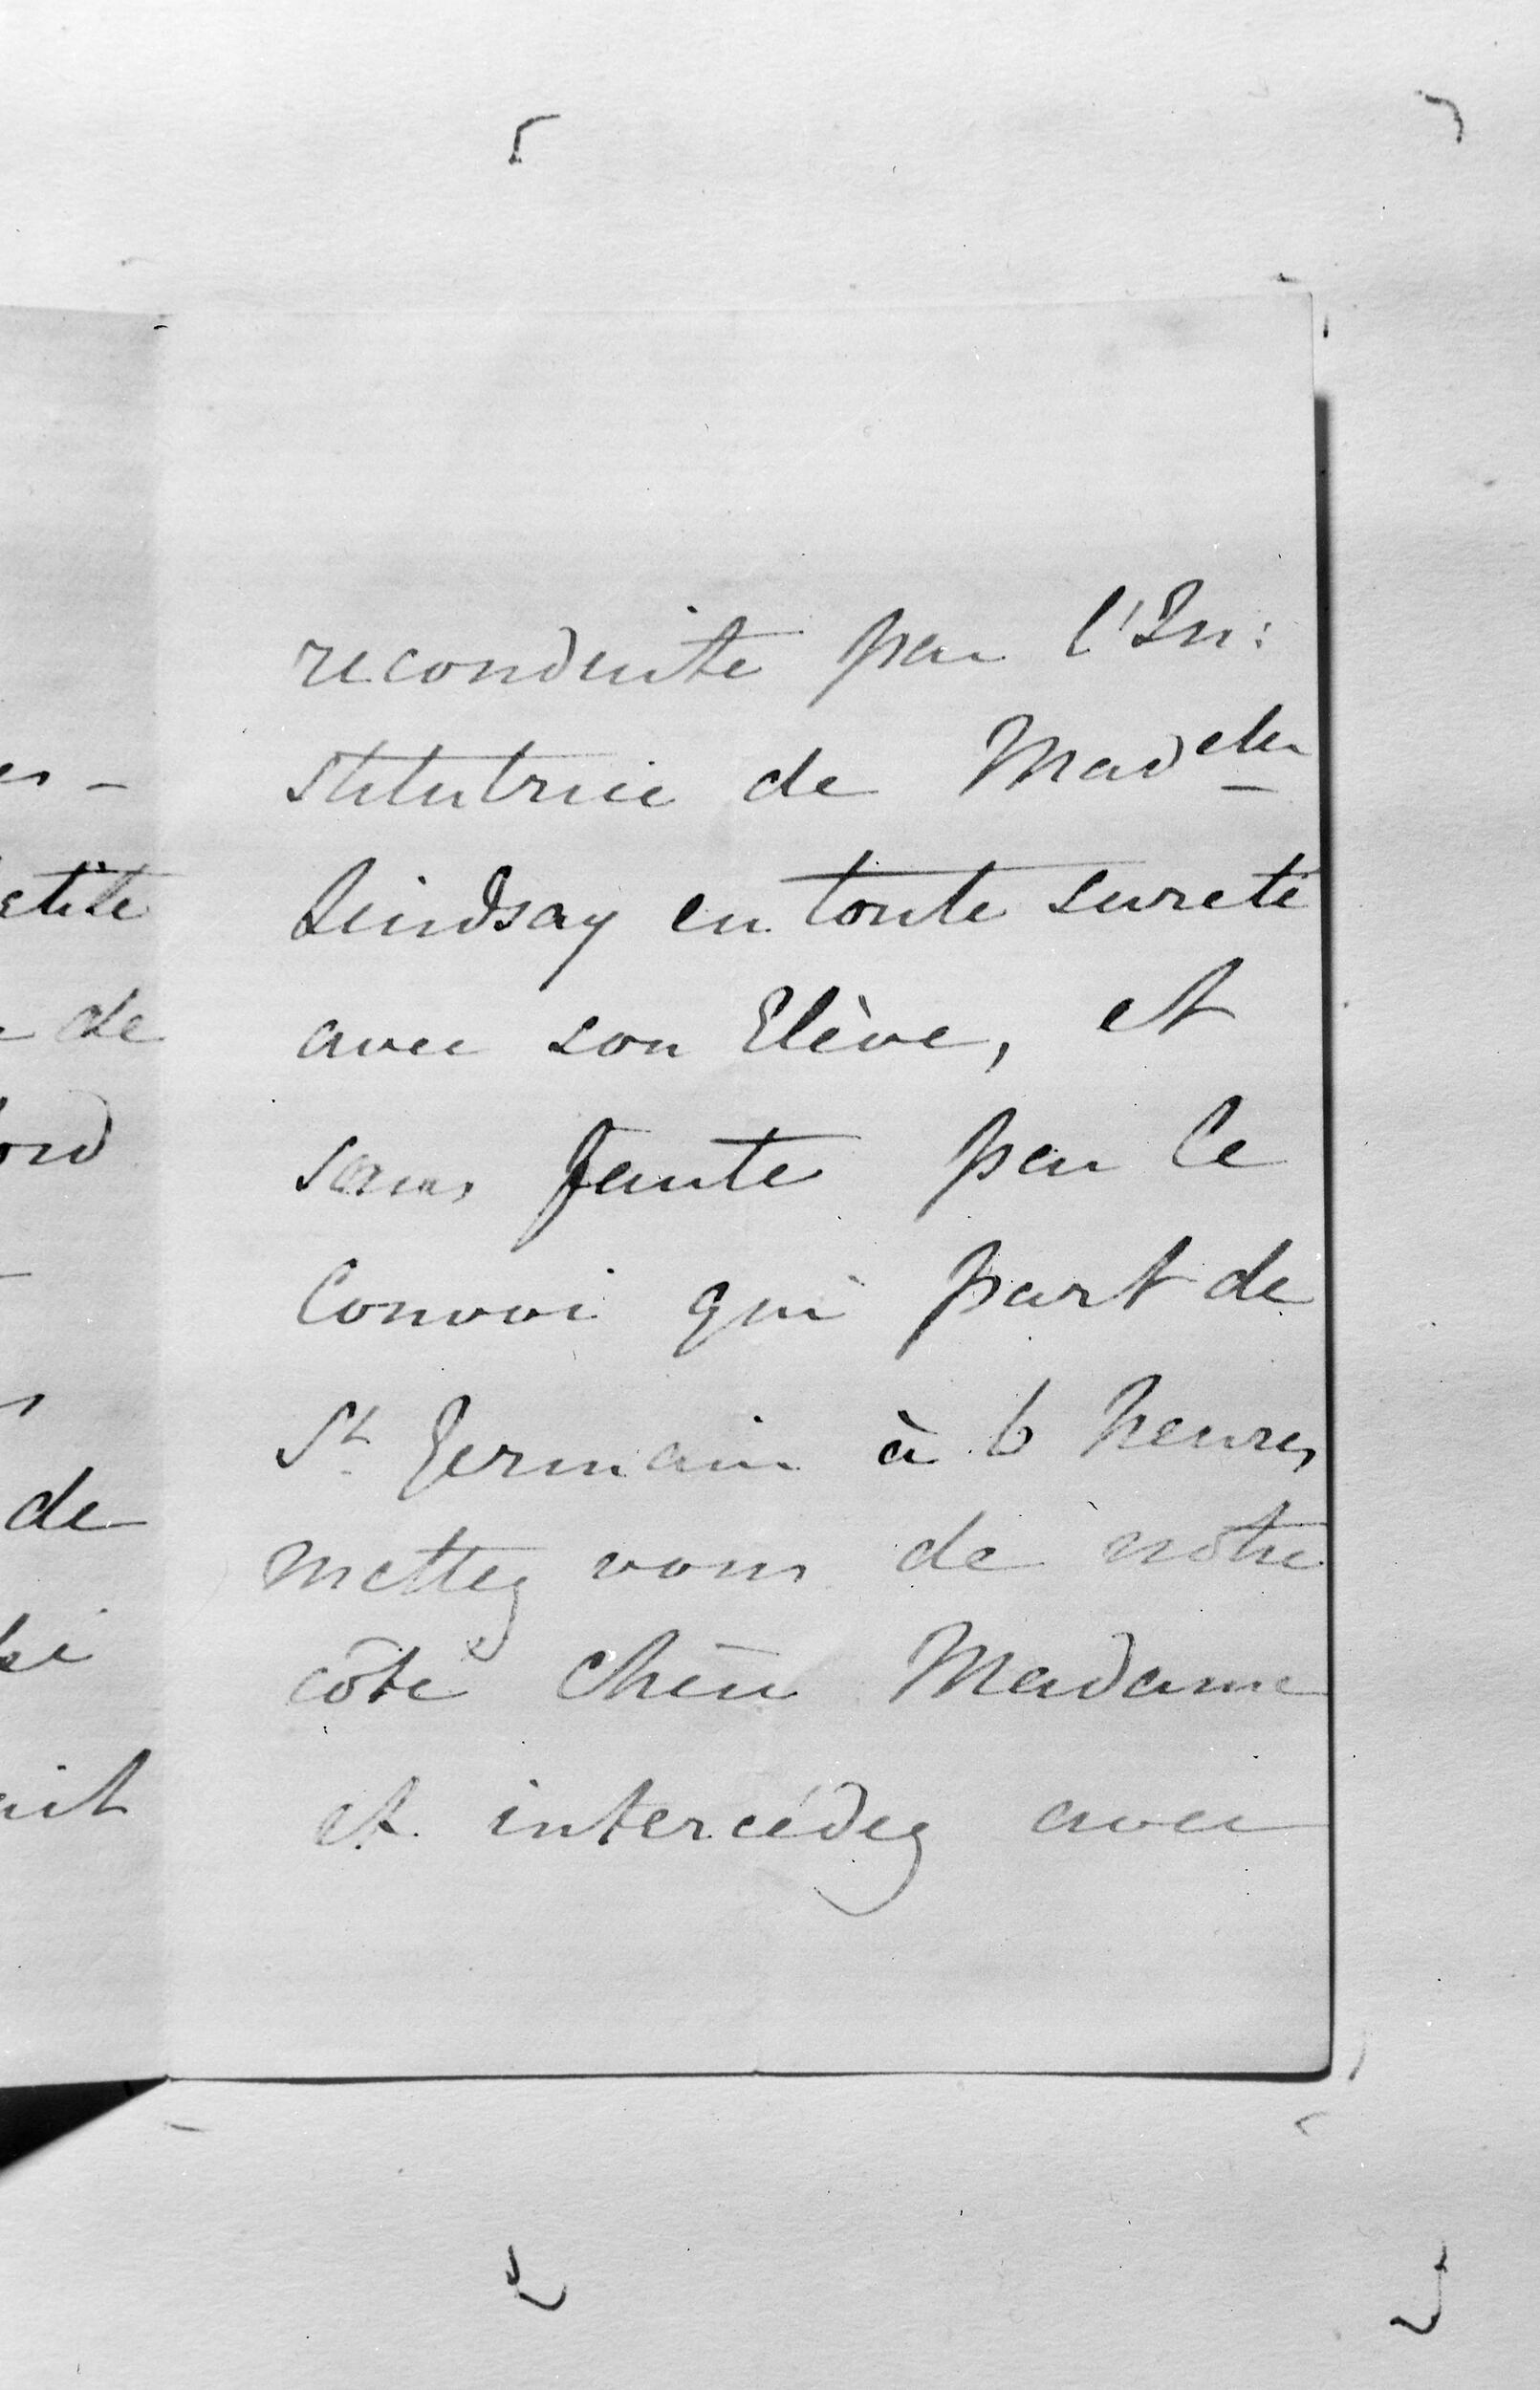 reconduite par l'In:
stitutrice de Mad<sup>elle</sup>
Lindsay en toute sureté
avec son Elève, et
sans faute par le
Convoi qui part de
St Germain à 6 heures
mettez vous de nôtre
côté chère Madame
et intercédez avec
etite
de
de